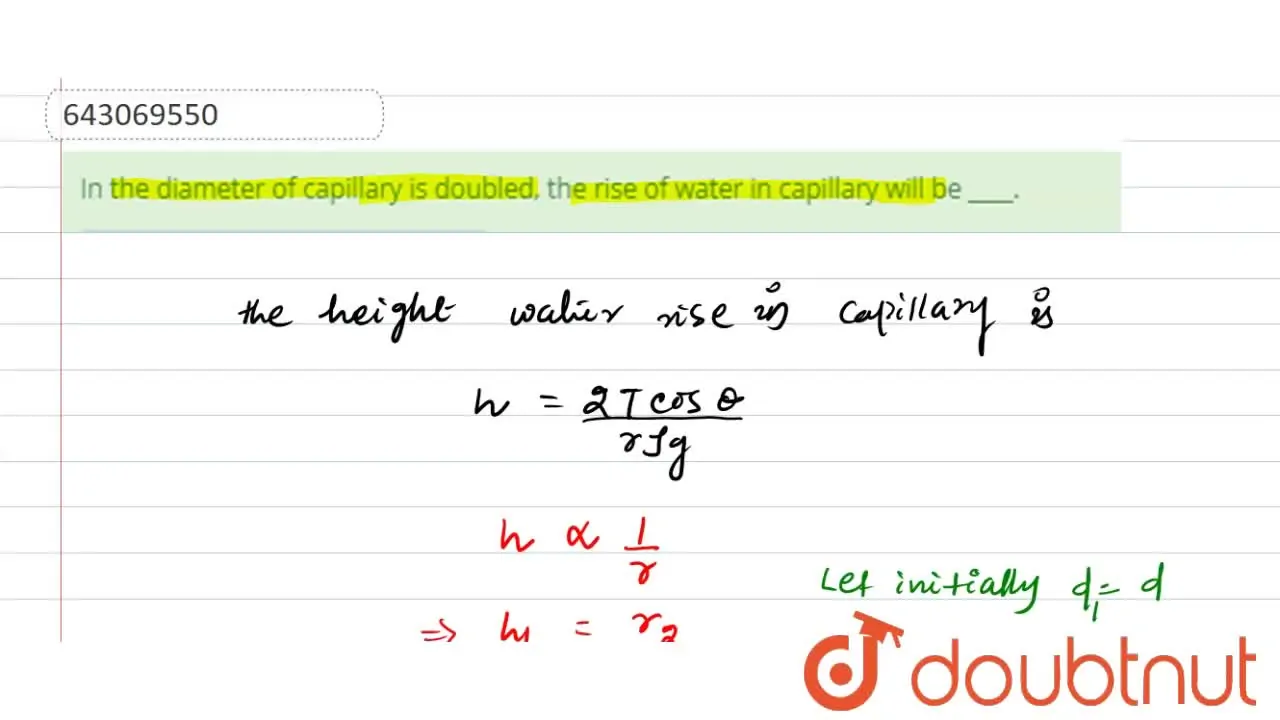 643069550
In the diameter of capillary is doubled, the rise of water in capillary will be ____.
the height water rise in capillary is
h = 2 T cos θ
rρg
h ∝ 1
r
Let initially d₁ = d
⇒ h₁ = r₂
doubtnut